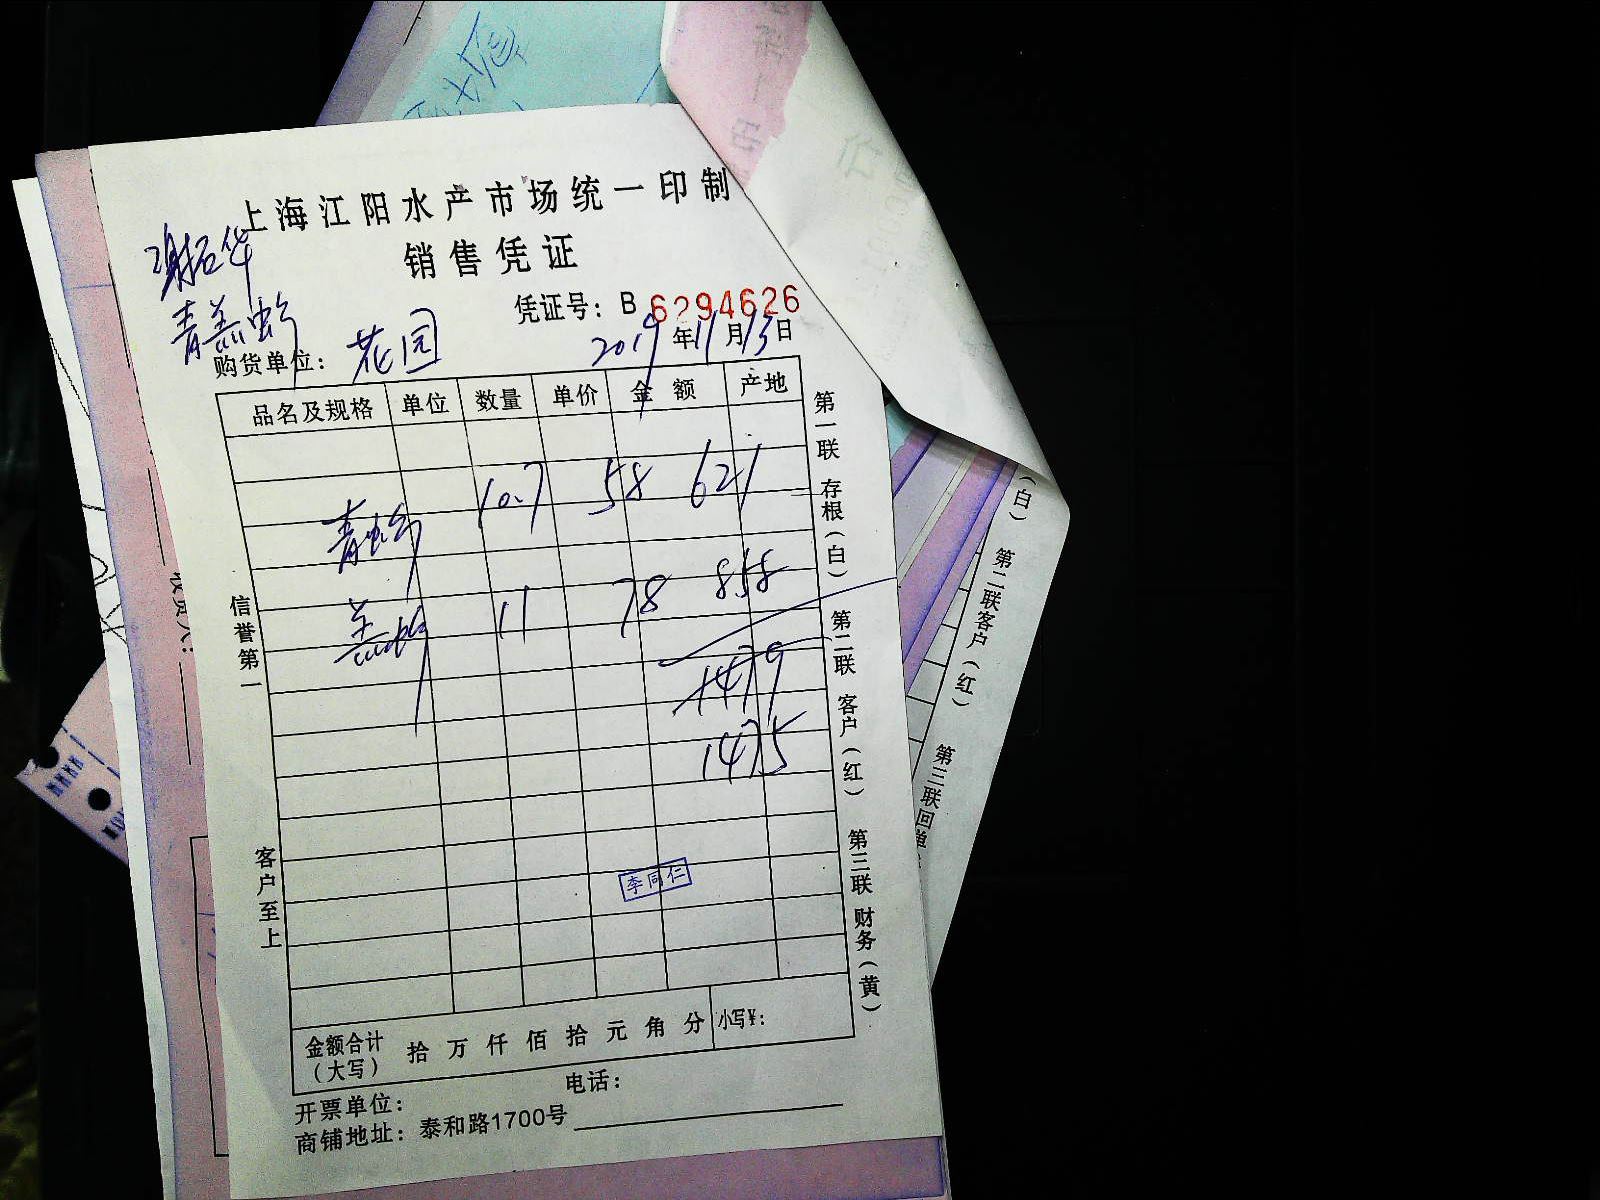 上海江阳水产市场统一印制
销售凭证
谢石华
青羔蚧
凭证号：B 6294626
购货单位：花园
2019年11月13日
品名及规格 单位 数量 单价 金额 产地
青蚧 10.7 58 621
羔蚧 11 78 858
1479
1475
李同仁
信誉第一
客户至上
第一联 存根（白） 第二联 客户（红） 第三联 财务（黄）
金额合计（大写） 拾 万 仟 佰 拾 元 角 分 小写¥：
开票单位： 电话：
商铺地址：泰和路1700号
（白） 第二联客户（红） 第三联回单
收货人：